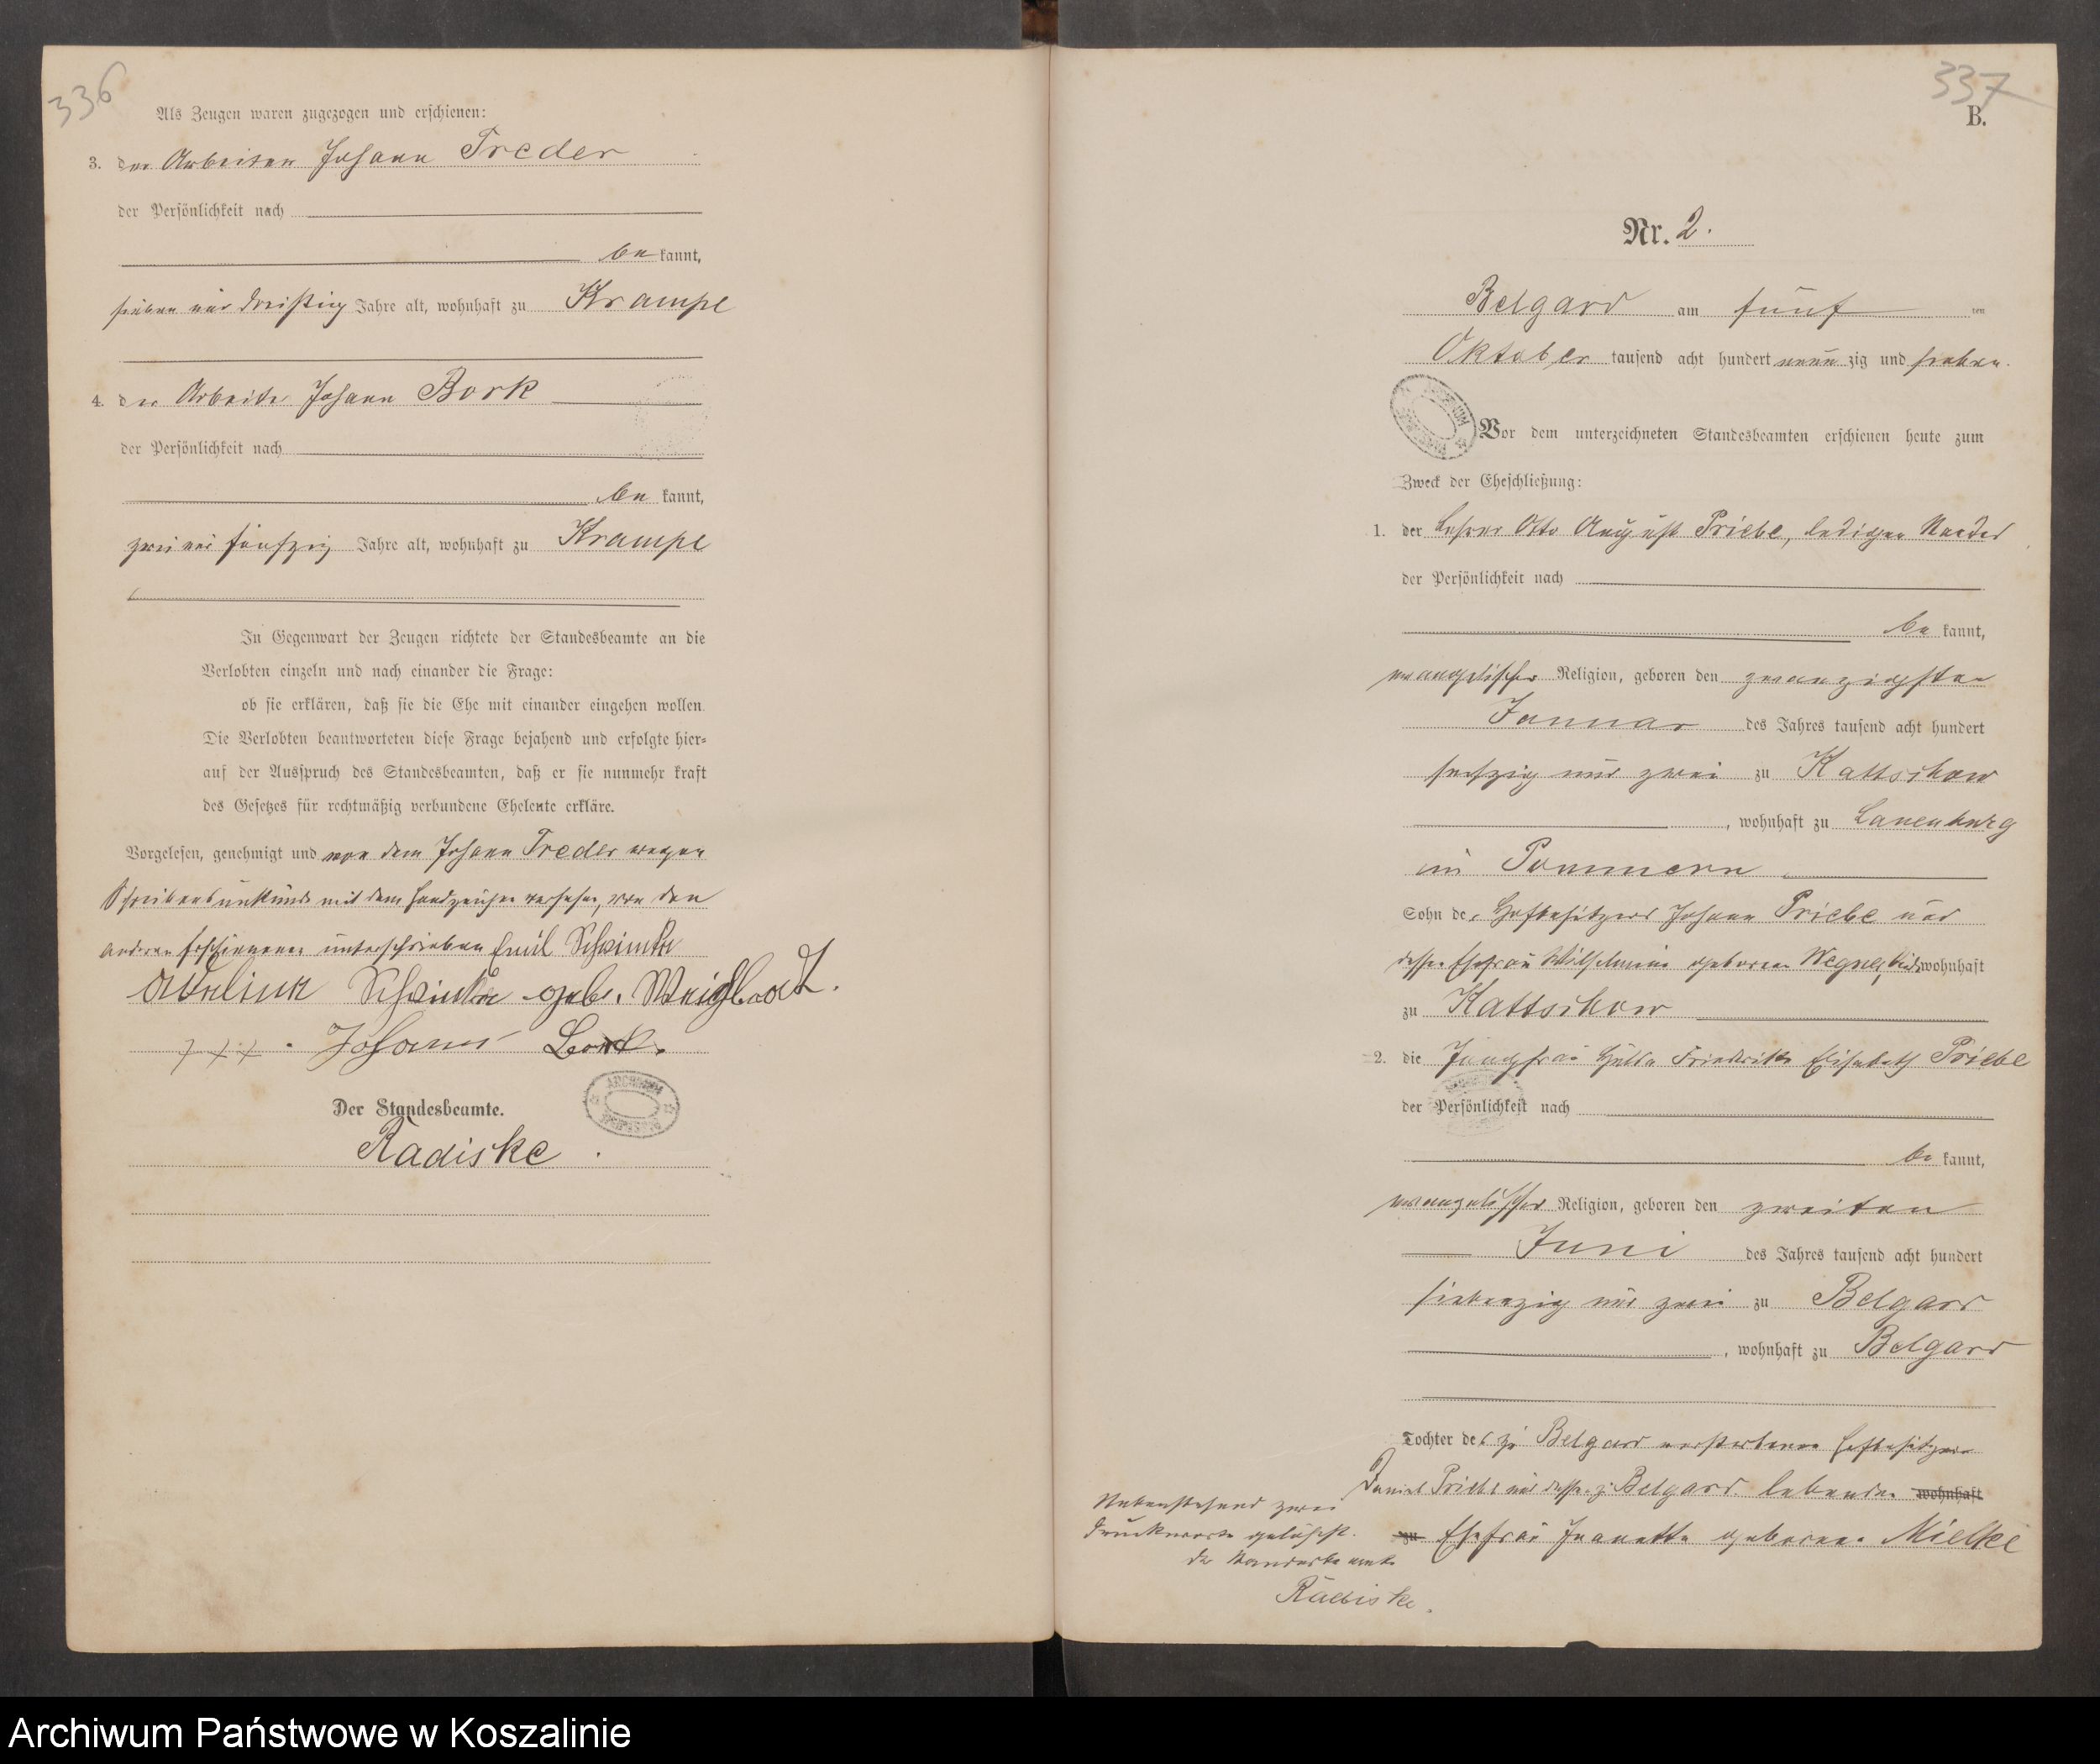 336
Als Zeugen waren zugezogen und erschienen:
3. der Arbeiter Johann Treder
der Persönlichkeit nach
be kannt,
sieben und dreißig Jahre alt, wohnhaft zu Krampe
4. der Arbeiter Johann Bork
der Persönlichkeit nach
be kannt,
zwei und fünfzig Jahre alt, wohnhaft zu Krampe
In Gegenwart der Zeugen richtete der Standesbeamte an die
Verlobten einzeln und nach einander die Frage:
ob sie erklären, daß sie die Ehe mit einander eingehen wollen.
Die Verlobten beantworteten diese Frage bejahend und erfolgte hier-
auf der Ausspruch des Standesbeamten, daß er sie nunmehr kraft
des Gesetzes für rechtmäßig verbundene Eheleute erkläre.
Vorgelesen, genehmigt und von dem Johann Treder wegen
Schreibensunkunde mit dem Handzeichen versehen, von den
anderen Erschienenen unterschrieben Emil
geb.
+++. Johann Bork.
Der Standesbeamte.
Radiske.
ARCHIWUM
337
B.
Nr. 2.
Belgard am fünf ten
Oktober tausend acht hundert neun zig und sieben.
Vor dem unterzeichneten Standesbeamten erschienen heute zum
Zweck der Eheschließung:
1. der Lehrer Otto August Priebe, ledigen Standes
der Persönlichkeit nach
be kannt,
evangelischer Religion, geboren den zwanzigsten
Januar des Jahres tausend acht hundert
sechzig und zwei zu Kattschow
, wohnhaft zu Lauenburg
in Pommern
Sohn des Hofbesitzers Johann Priebe und
dessen Ehefrau Wilhelmine geborene Wegner, beide wohnhaft
zu Kattschow
2. die Jungfrau Hulda Friedricke Elisabeth Priebe
der Persönlichkeit nach
be kannt,
evangelischer Religion, geboren den zweiten
Juni des Jahres tausend acht hundert
siebenzig und zwei zu Belgard
, wohnhaft zu Belgard
Tochter des zu Belgard verstorbenen Hofbesitzers
Daniel Priebe und dessen zu Belgard lebenden wohnhaft
zu Ehefrau Jeanette geborene Mielke
Nebenstehend zwei
Druckworte gelöscht.
Der Standesbeamte
Radiske.
Archiwum Państwowe w Koszalinie